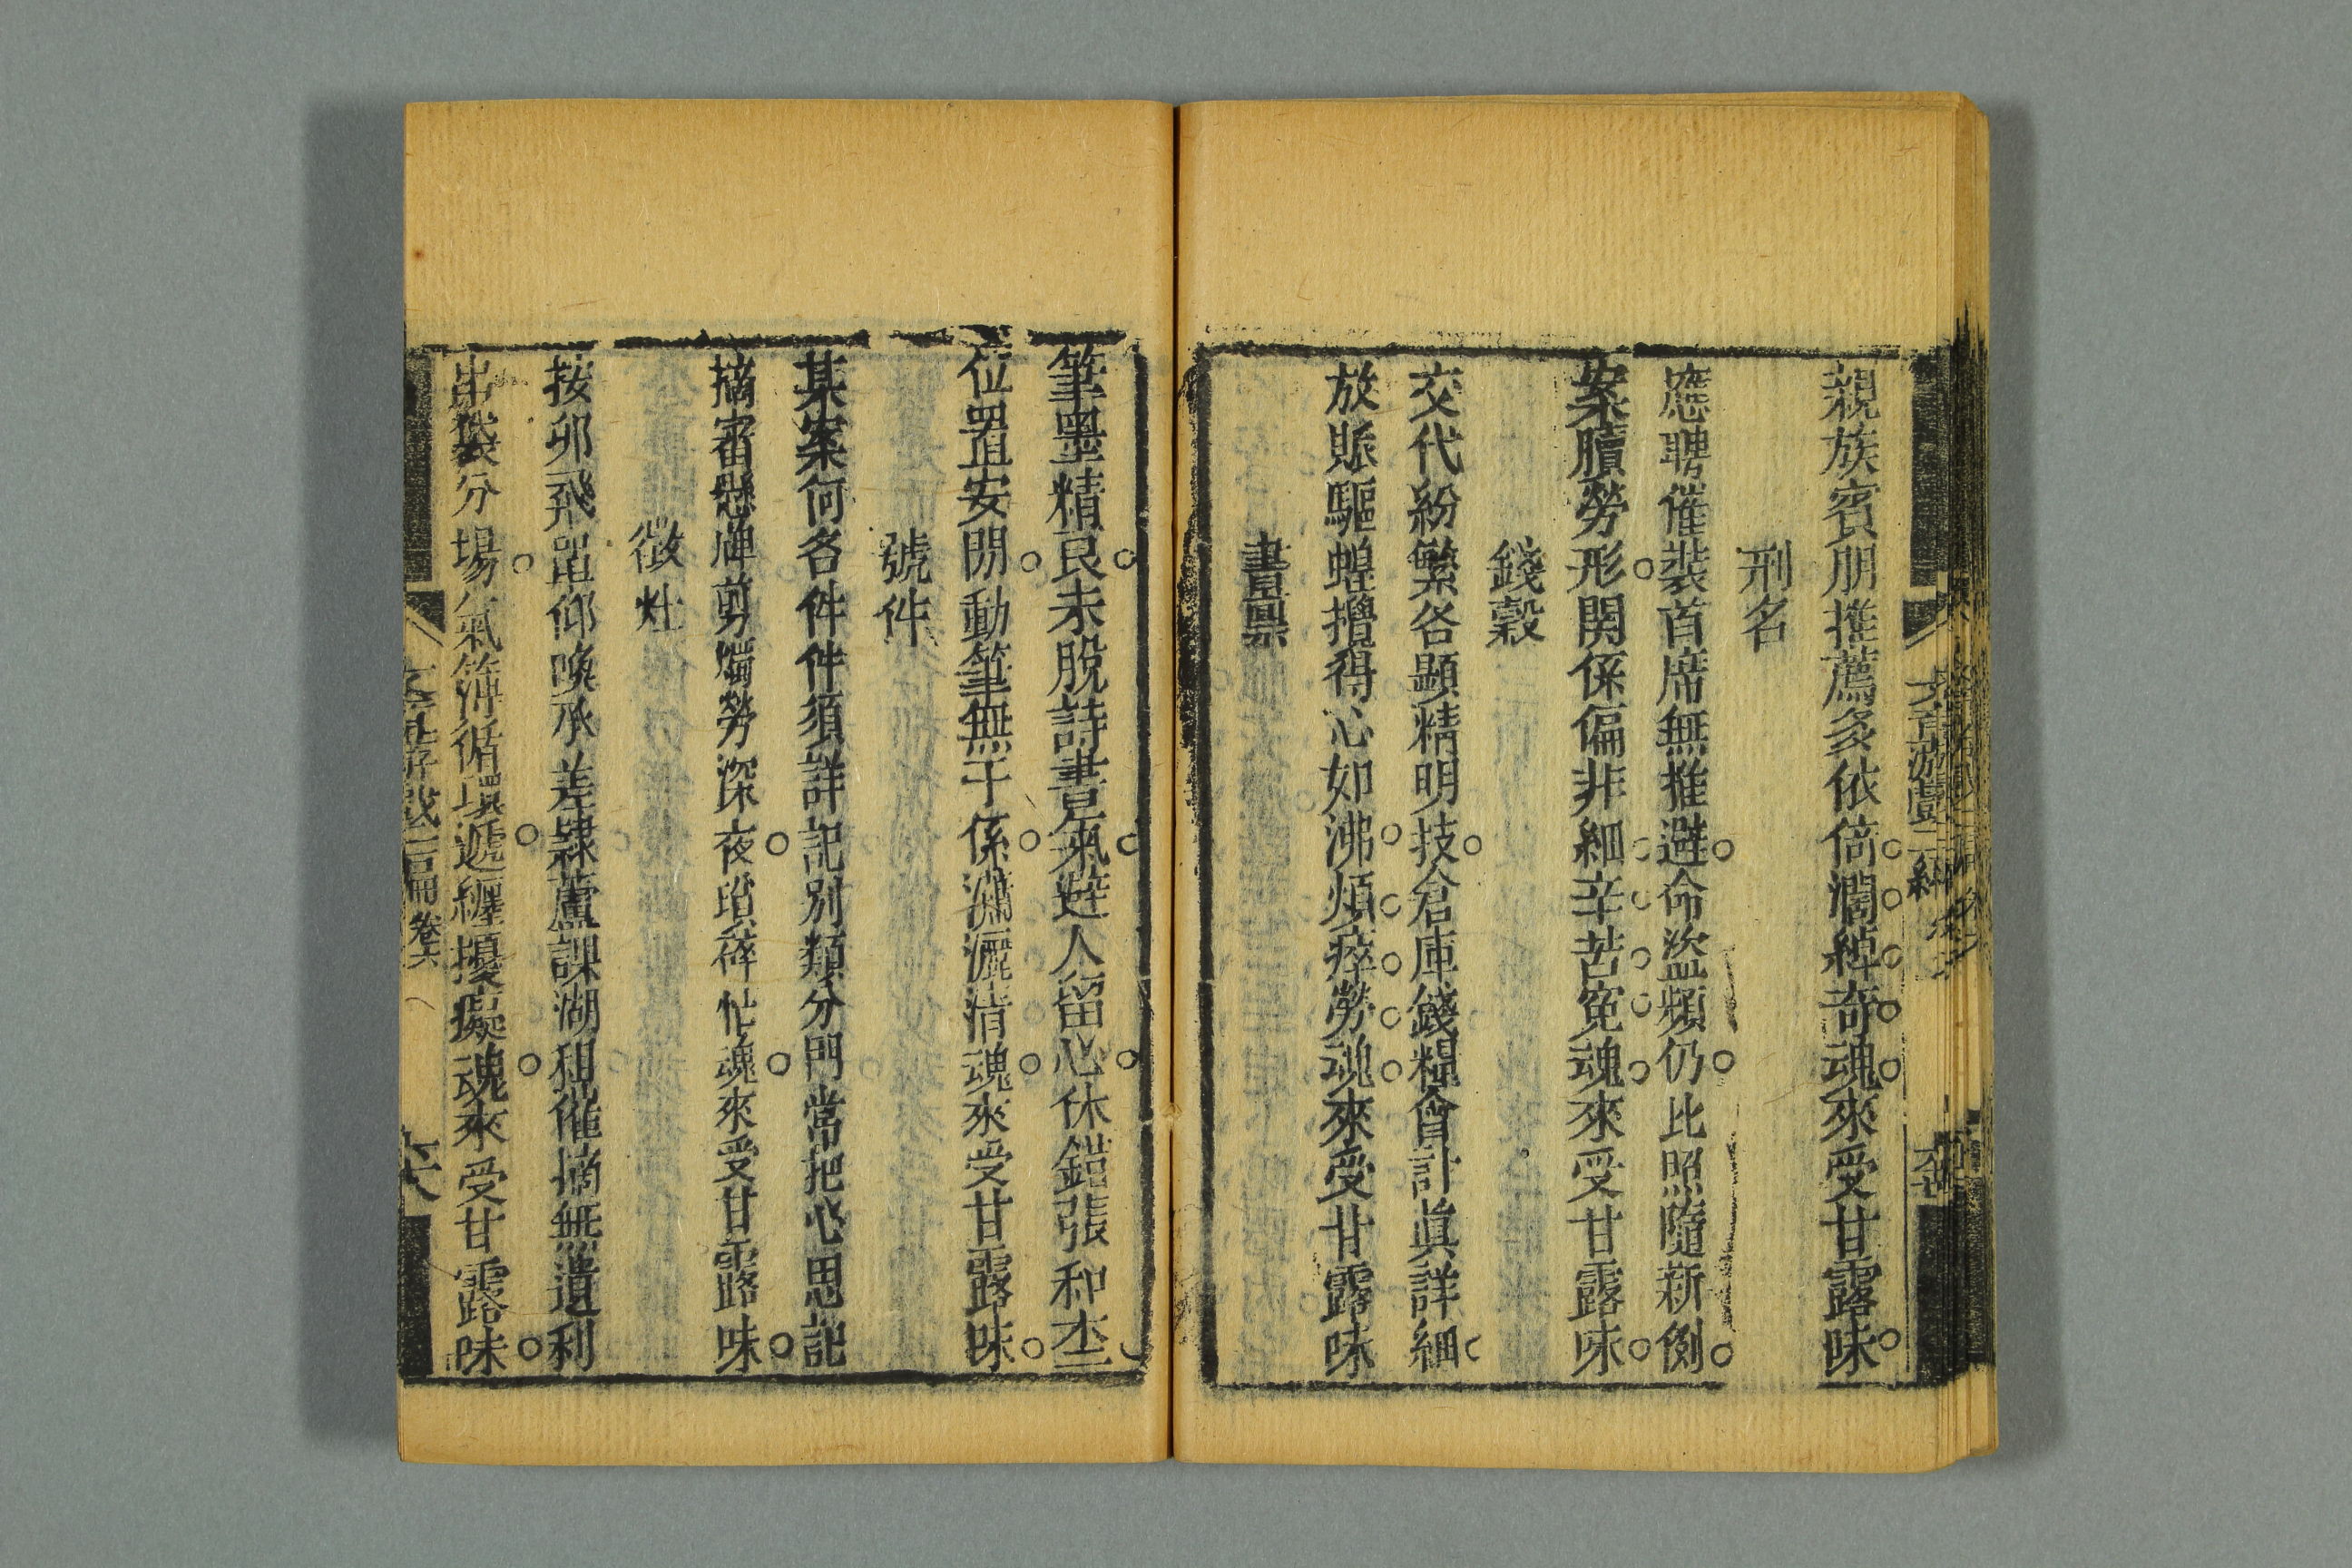 親族賓朋推薦多依倚濶綽奇魂來受甘露味
刑名
應聘催裝首席無推避命盜頻仍比照隨新例
案牘勞形関係偏非細辛苦寃魂來受甘露味
錢穀
交代紛繁各顯精明技倉庫錢糧會計眞詳細
放賑驅蝗攪得心如沸煩瘁勞魂來受甘露味
書禀
筆墨精良未脫詩書氣避人留心休錯張和李
位置安閒動筆無干係瀟灑清魂來受甘露味
號件
某案何名件件須詳記別類分門常把心思記
摘審懸牌剪燭勞深夜瑣碎忙魂來受甘露味
徵灶
按卯飛單仰喚承差隸蘆課湖租催摘無遺利
出袋分場氣簿循環遞纏擾癡魂來受甘露味
卷六